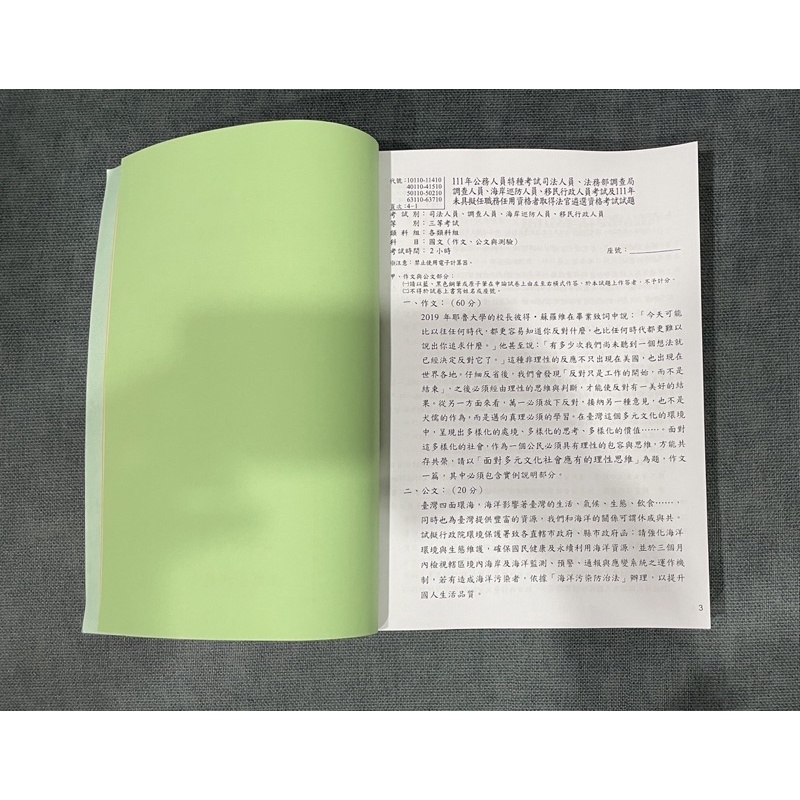 代號：10110-11410
40110-41510
50110-50210
63110-63710
頁次：4-1
111年公務人員特種考試司法人員、法務部調查局
調查人員、海岸巡防人員、移民行政人員考試及111年
未具擬任職務任用資格者取得法官遴選資格考試試題
考試別：司法人員、調查人員、海岸巡防人員、移民行政人員
等別：三等考試
類科組：各類科組
科目：國文（作文、公文與測驗）
考試時間：2小時
座號：
※注意：禁止使用電子計算器。
甲、作文與公文部分：
㈠請以藍、黑色鋼筆或原子筆在申論試卷上由左至右橫式作答，於本試題上作答者，不予計分。
㈡不得於試卷上書寫姓名或座號。
一、作文：（60分）
2019 年耶魯大學的校長彼得．蘇羅維在畢業致詞中說：「今天可能
比以往任何時代，都更容易知道你反對什麼，也比任何時代都更難以
說出你追求什麼。」他甚至說：「有多少次我們尚未聽到一個想法就
已經決定反對它了。」這種非理性的反應不只出現在美國，也出現在
世界各地。仔細反省後，我們會發現「反對只是工作的開始，而不是
結束」，之後必須經由理性的思維與判斷，才能使反對有一美好的結
果。從另一方面來看，萬一必須放下反對，接納另一種意見，也不是
犬儒的作為，而是邁向真理必須的學習。在臺灣這個多元文化的環境
中，呈現出多樣化的處境、多樣化的思考、多樣化的價值……。面對
這多樣化的社會，作為一個公民必須具有理性的包容與思維，方能共
存共榮，請以「面對多元文化社會應有的理性思維」為題，作文
一篇，其中必須包含實例說明部分。
二、公文：（20分）
臺灣四面環海，海洋影響著臺灣的生活、氣候、生態、飲食……，
同時也為臺灣提供豐富的資源，我們和海洋的關係可謂休戚與共。
試擬行政院環境保護署致各直轄市政府、縣市政府函：請強化海洋
環境與生態維護，確保國民健康及永續利用海洋資源，並於三個月
內檢視轄區境內海岸及海洋監測、預警、通報與應變系統之運作機
制，若有造成海洋污染者，依據「海洋污染防治法」辦理，以提升
國人生活品質。
3